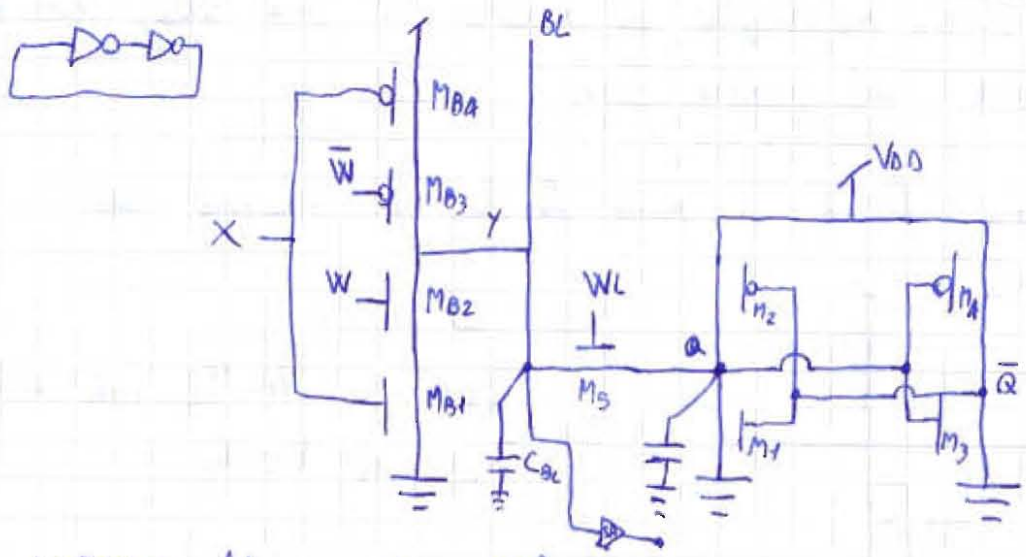 BL
MB4
W̅
MB3
Y
X
W
MB2
MB1
CBL
WL
M5
Q
VDD
M2
M4
Q̅
M1
M3